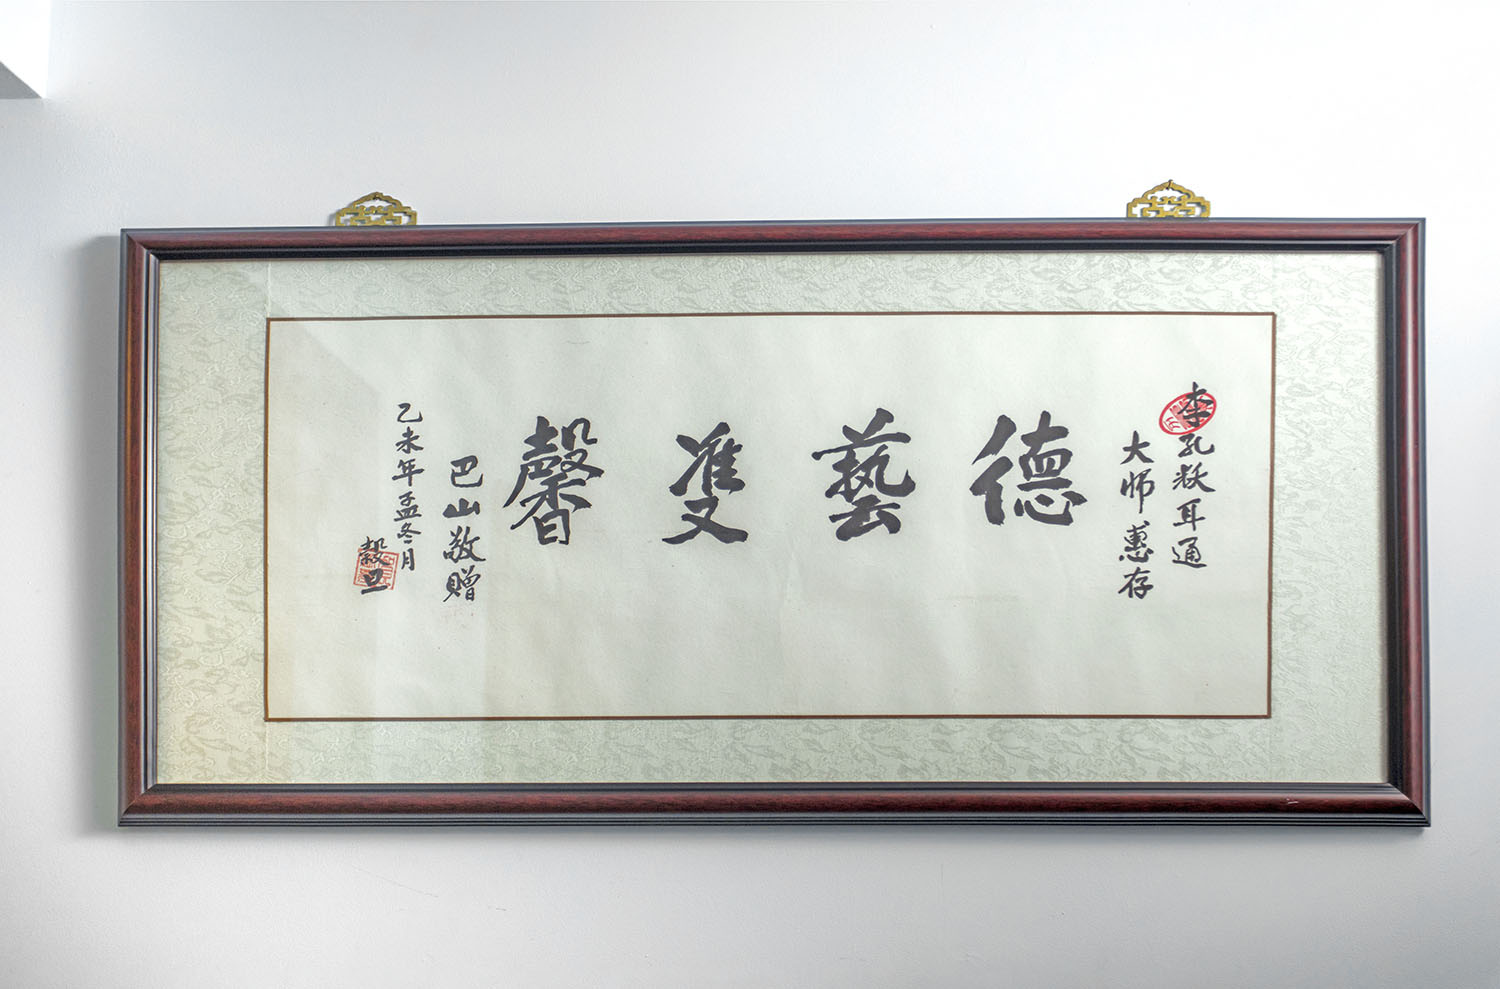 李孔籹耳通
大师蕙存
德藝雙馨
巴山敬赠
乙未年孟冬月